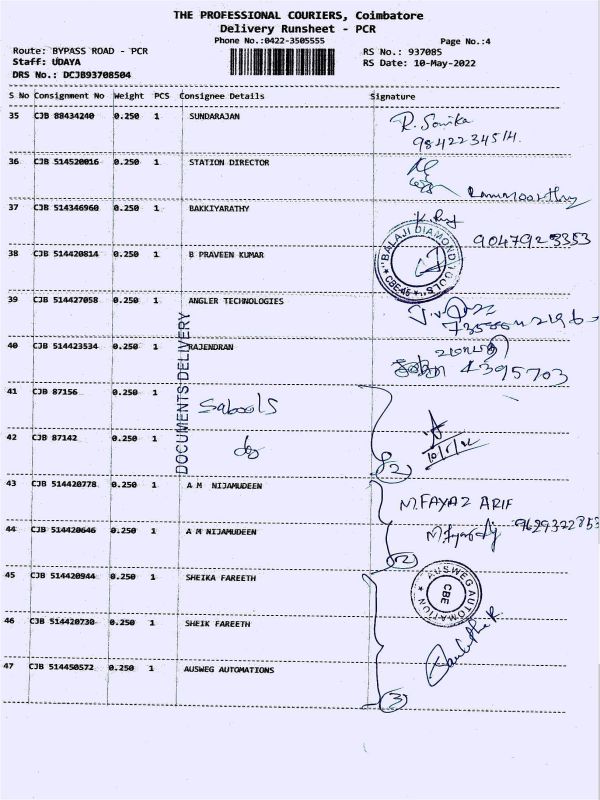 THE PROFESSIONAL COURIERS, Coimbatore
Delivery Runsheet - PCR
Phone No.:0422-3505555 Page No.:4
Route: BYPASS ROAD - PCR RS No.: 937085
Staff: UDAYA RS Date: 10-May-2022
DRS No.: DCJB93708504
S No Consignment No Weight PCS Consignee Details Signature
35 CJB 88434240 0.250 1 SUNDARAJAN R. Sonika
9842234514.
36 CJB 514520016 0.250 1 STATION DIRECTOR
37 CJB 514346960 0.250 1 BAKKIYARATHY
9047923353
38 CJB 514420814 0.250 1 B PRAVEEN KUMAR
"BALAJI DIAMOND TOOLS" CBE-45
39 CJB 514427058 0.250 1 ANGLER TECHNOLOGIES
40 CJB 514423534 0.250 1 RAJENDRAN
4395703
DOCUMENTS DELIVERY
41 CJB 87156 0.250 1 Sabools
42 CJB 87142 0.250 1 do
10/5/22
(2)
43 CJB 514420778 0.250 1 A M NIJAMUDEEN
M.FAYAZ ARIF
44 CJB 514420646 0.250 1 A M NIJAMUDEEN
9629322853
(2)
45 CJB 514420944 0.250 1 SHEIKA FAREETH
AUSWEG AUTOMATION CBE
46 CJB 514420730 0.250 1 SHEIK FAREETH
47 CJB 514450572 0.250 1 AUSWEG AUTOMATIONS
(3)